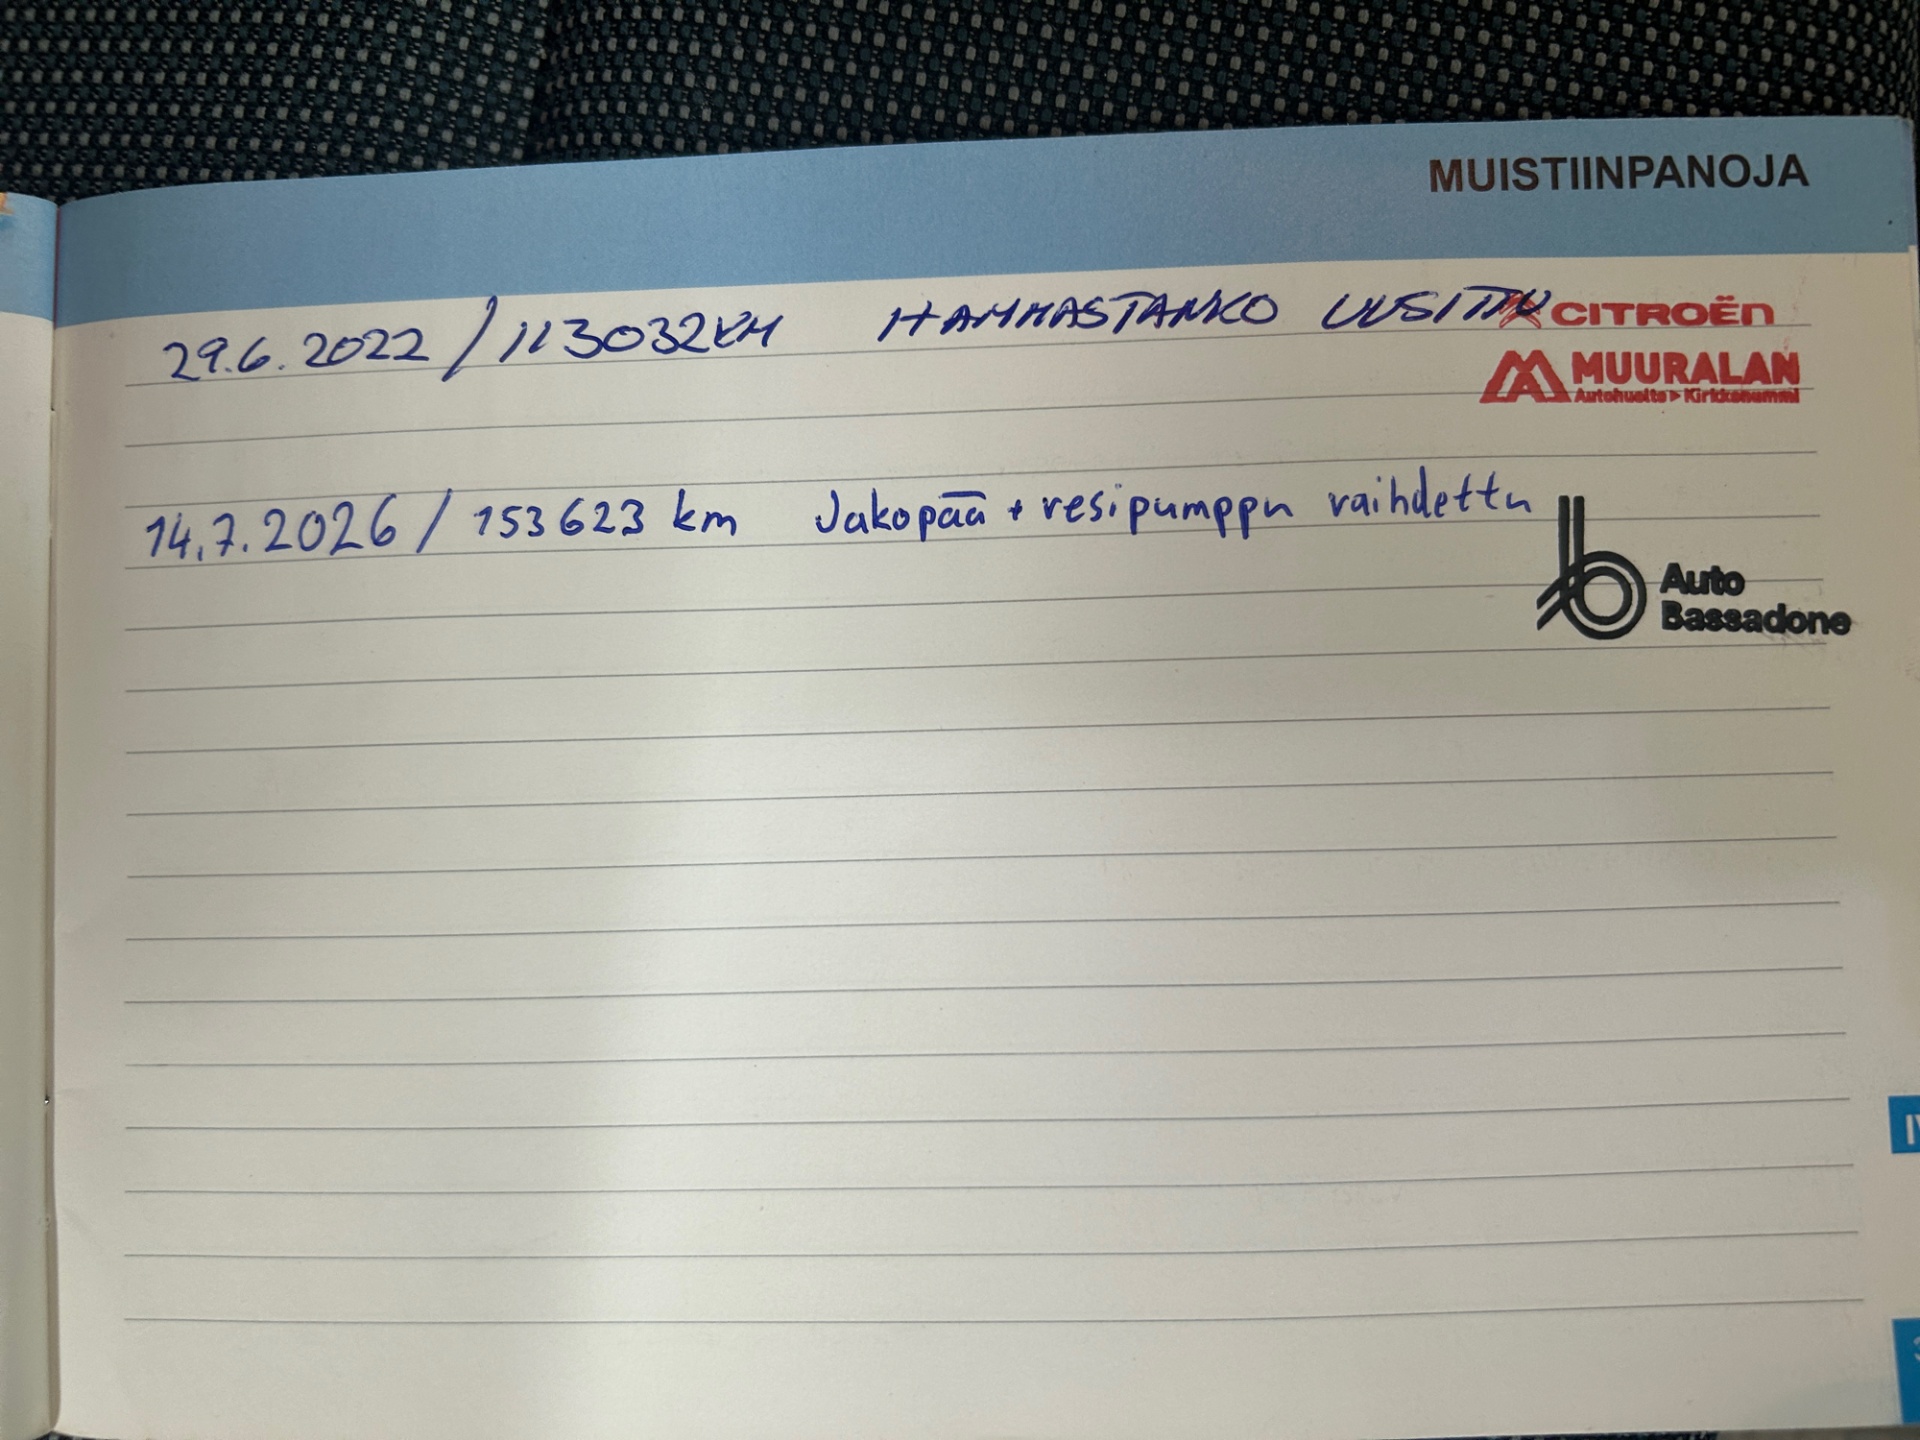 MUISTIINPANOJA
29.6.2022 / 113032KM HAMMASTANKO UUSITTU
CITROËN
MUURALAN
Autohuolto ▸ Kirkkonummi
14.7.2026 / 153623 km Jakopää + vesipumppu vaihdettu
Auto
Bassadone